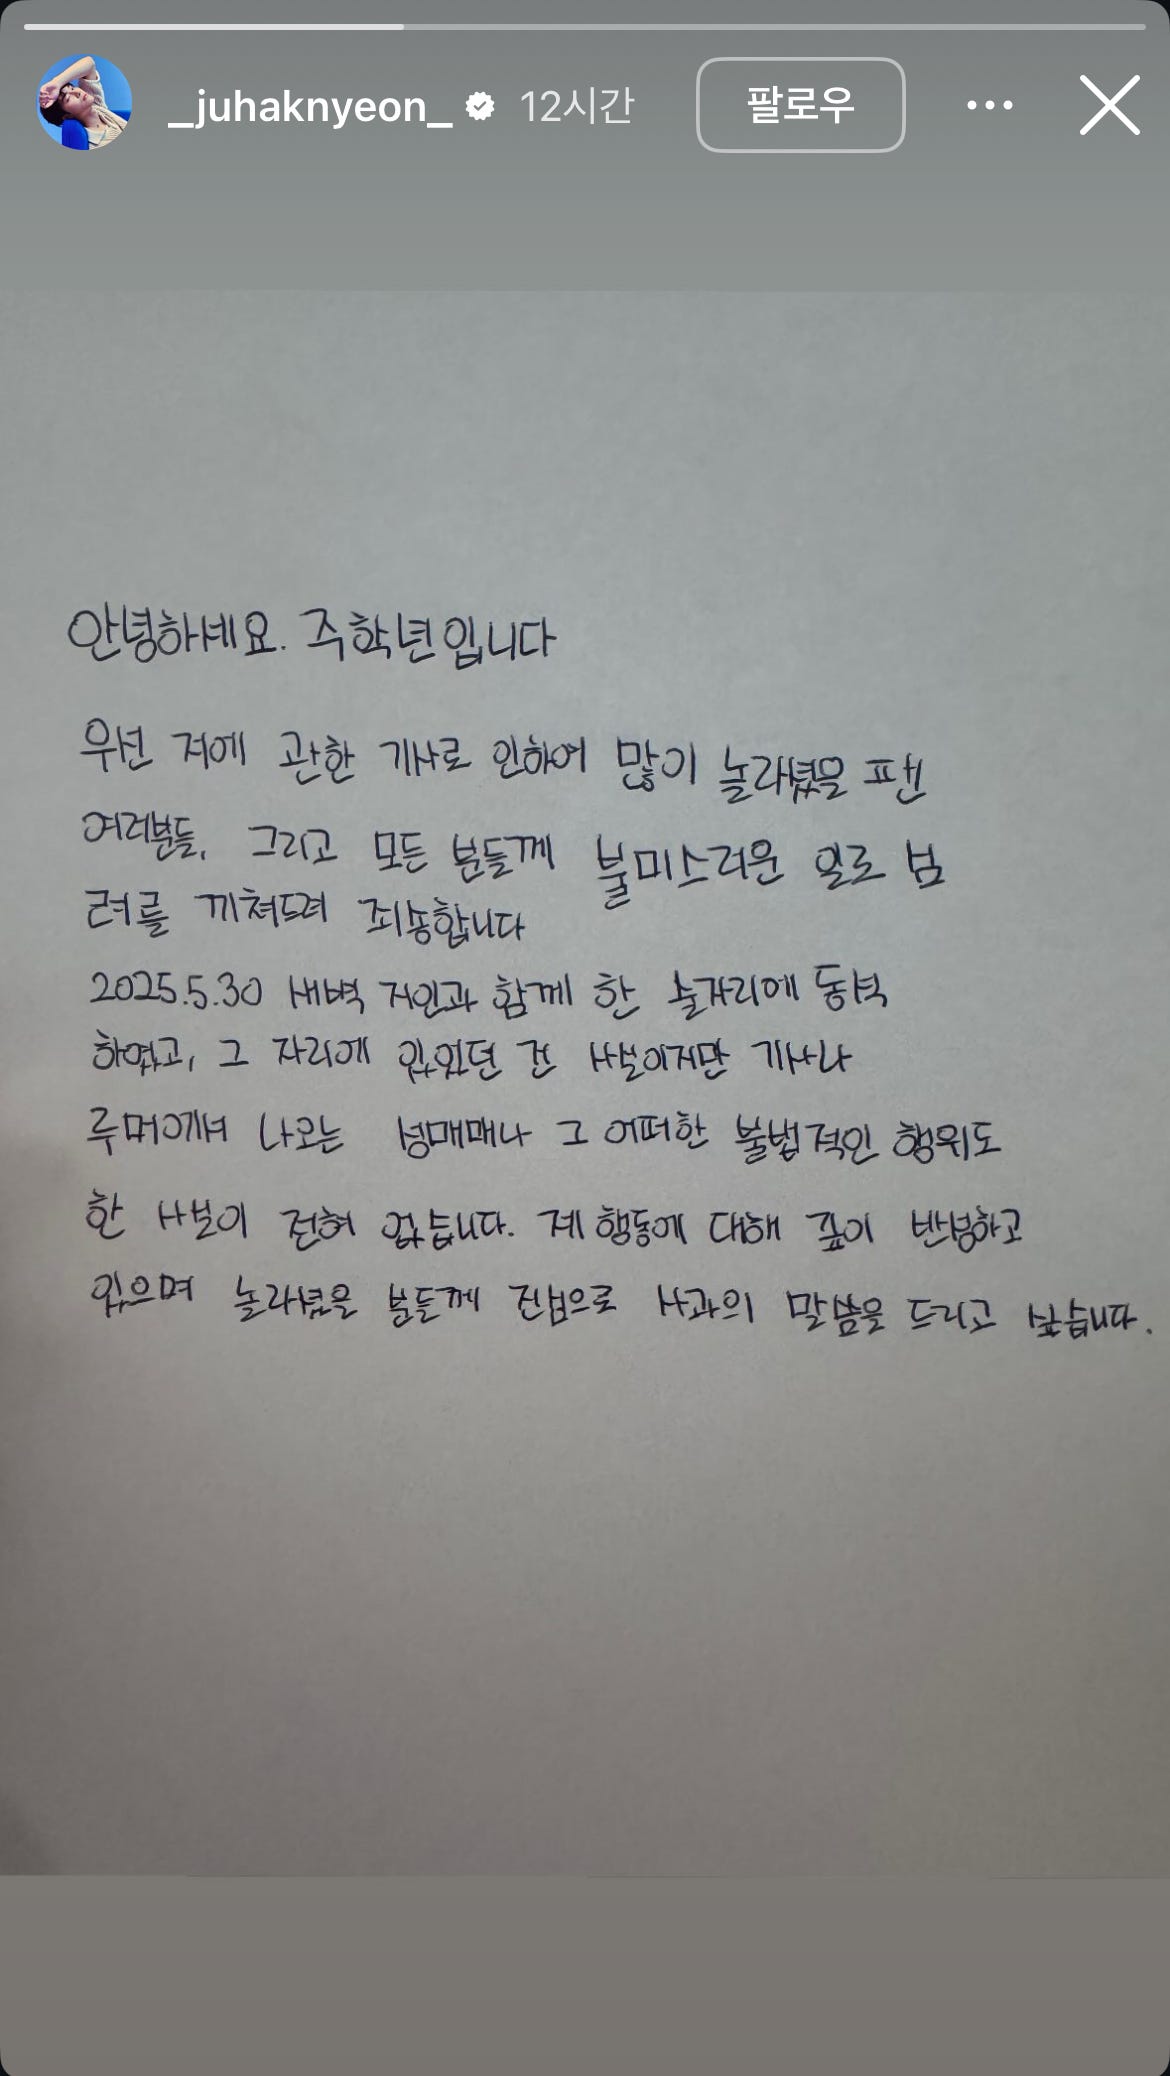 _juhaknyeon_ 12시간 팔로우
안녕하세요. 주학년입니다
우선 저에 관한 기사로 인하여 많이 놀라셨을 팬
여러분들, 그리고 모든 분들께 불미스러운 일로 심
려를 끼쳐드려 죄송합니다
2025.5.30 새벽 지인과 함께 한 술자리에 동석
하였고, 그 자리에 있었던 건 사실이지만 기사나
루머에서 나오는 성매매나 그 어떠한 불법적인 행위도
한 사실이 전혀 없습니다. 제 행동에 대해 깊이 반성하고
있으며 놀라셨을 분들께 진심으로 사과의 말씀을 드리고 싶습니다.